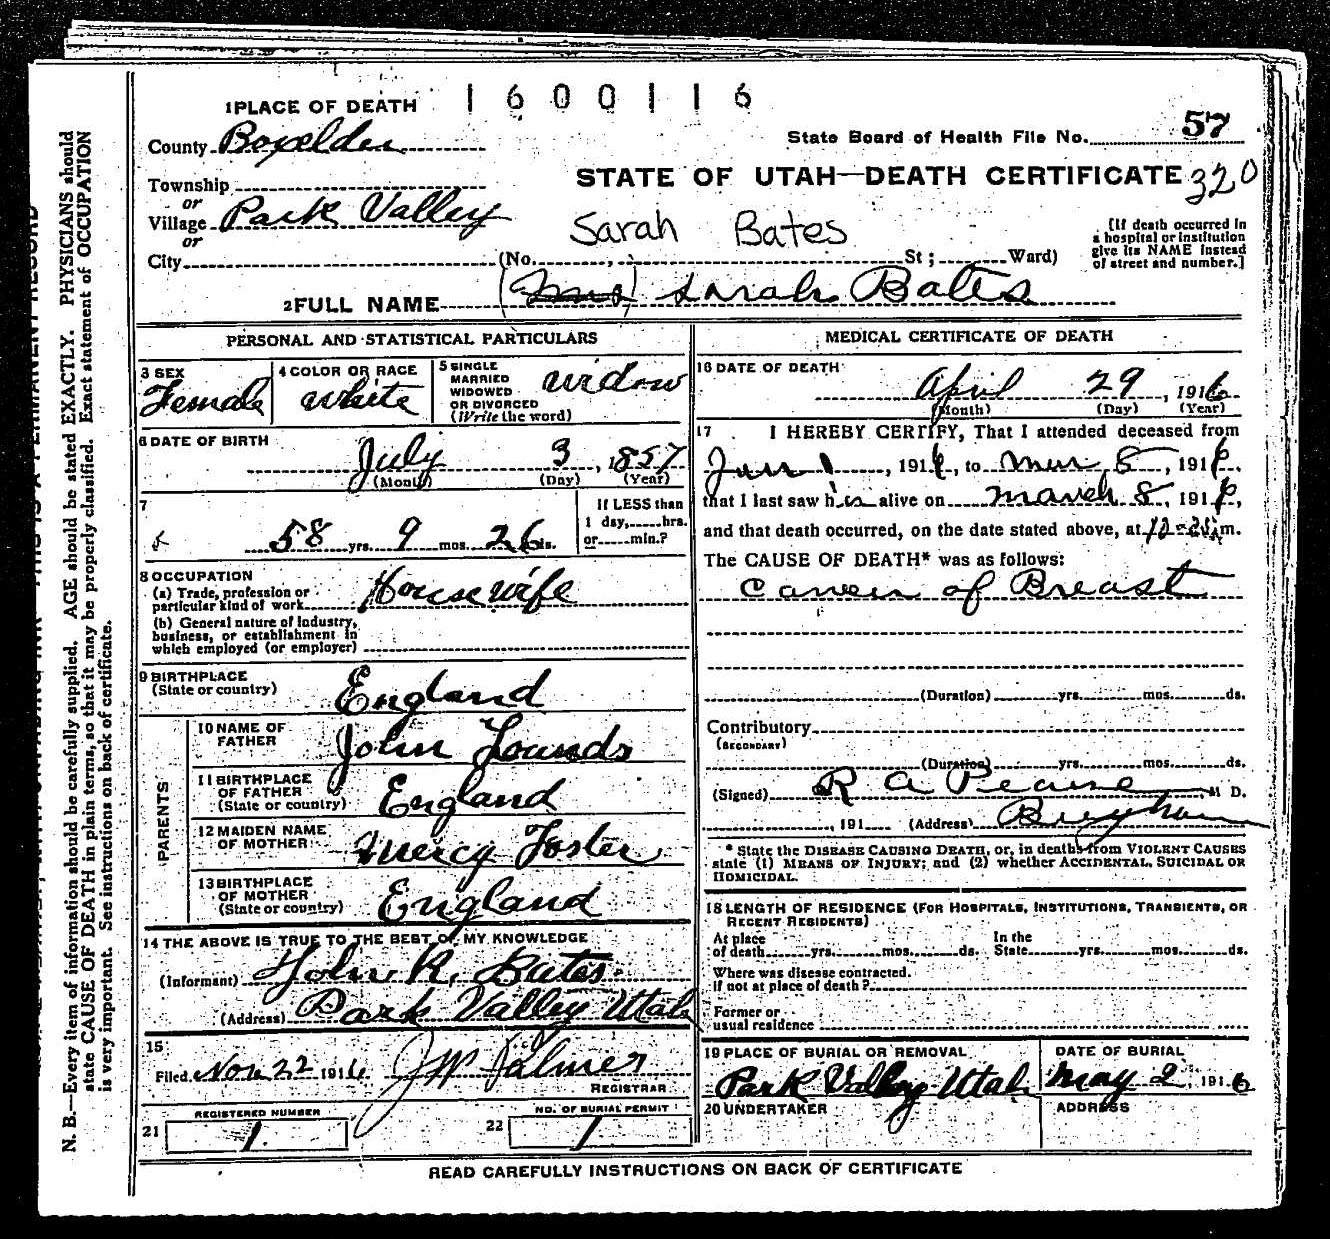 1 PLACE OF DEATH 1600116
County Boxelder
State Board of Health File No. 57
Township
or
Village Park Valley
or
City
STATE OF UTAH—DEATH CERTIFICATE 320
Sarah Bates
(No. , St ; Ward)
[If death occurred in
a hospital or institution
give its NAME instead
of street and number.]
2 FULL NAME (Mrs) Sarah Bates
PERSONAL AND STATISTICAL PARTICULARS
3 SEX
Female
4 COLOR OR RACE
white
5 SINGLE
MARRIED
WIDOWED
OR DIVORCED
(Write the word)
widow
6 DATE OF BIRTH
July 3, 1857
(Month) (Day) (Year)
7
58 yrs. 9 mos. 26 ds.
If LESS than
1 day, hrs.
or min.?
8 OCCUPATION
(a) Trade, profession or
particular kind of work Housewife
(b) General nature of Industry,
business, or establishment in
which employed (or employer)
9 BIRTHPLACE
(State or country) England
PARENTS
10 NAME OF
FATHER John Lounds
11 BIRTHPLACE
OF FATHER
(State or country) England
12 MAIDEN NAME
OF MOTHER Mercy Foster
13 BIRTHPLACE
OF MOTHER
(State or country) England
14 THE ABOVE IS TRUE TO THE BEST OF MY KNOWLEDGE
(Informant) John R. Bates
(Address) Park Valley Utah
15
Filed Nov 22 1916 J W Palmer
REGISTRAR
REGISTERED NUMBER
21 1
NO. OF BURIAL PERMIT
22 1
MEDICAL CERTIFICATE OF DEATH
16 DATE OF DEATH
April 29, 1916
(Month) (Day) (Year)
17 I HEREBY CERTIFY, That I attended deceased from
Jan 1, 1916, to Mar 8, 1916,
that I last saw her alive on March 8, 1916,
and that death occurred, on the date stated above, at m.
The CAUSE OF DEATH* was as follows:
Cancer of Breast
(Duration) yrs. mos. ds.
Contributory
(SECONDARY)
(Duration) yrs. mos. ds.
(Signed) R A Pearse, M D.
, 191 (Address) Brigham
* State the DISEASE CAUSING DEATH, or, in deaths from VIOLENT CAUSES
state (1) MEANS OF INJURY; and (2) whether ACCIDENTAL, SUICIDAL OR
HOMICIDAL.
18 LENGTH OF RESIDENCE (FOR HOSPITALS, INSTITUTIONS, TRANSIENTS, OR
RECENT RESIDENTS)
At place
of death yrs. mos. ds.
In the
State yrs. mos. ds.
Where was disease contracted.
if not at place of death?
Former or
usual residence
19 PLACE OF BURIAL OR REMOVAL
Park Valley Utah
DATE OF BURIAL
May 2 1916
20 UNDERTAKER
ADDRESS
READ CAREFULLY INSTRUCTIONS ON BACK OF CERTIFICATE
N. B.—Every item of information should be carefully supplied. AGE should be stated EXACTLY. PHYSICIANS should
state CAUSE OF DEATH in plain terms, so that it may be properly classified. Exact statement of OCCUPATION
is very important. See instructions on back of certificate.